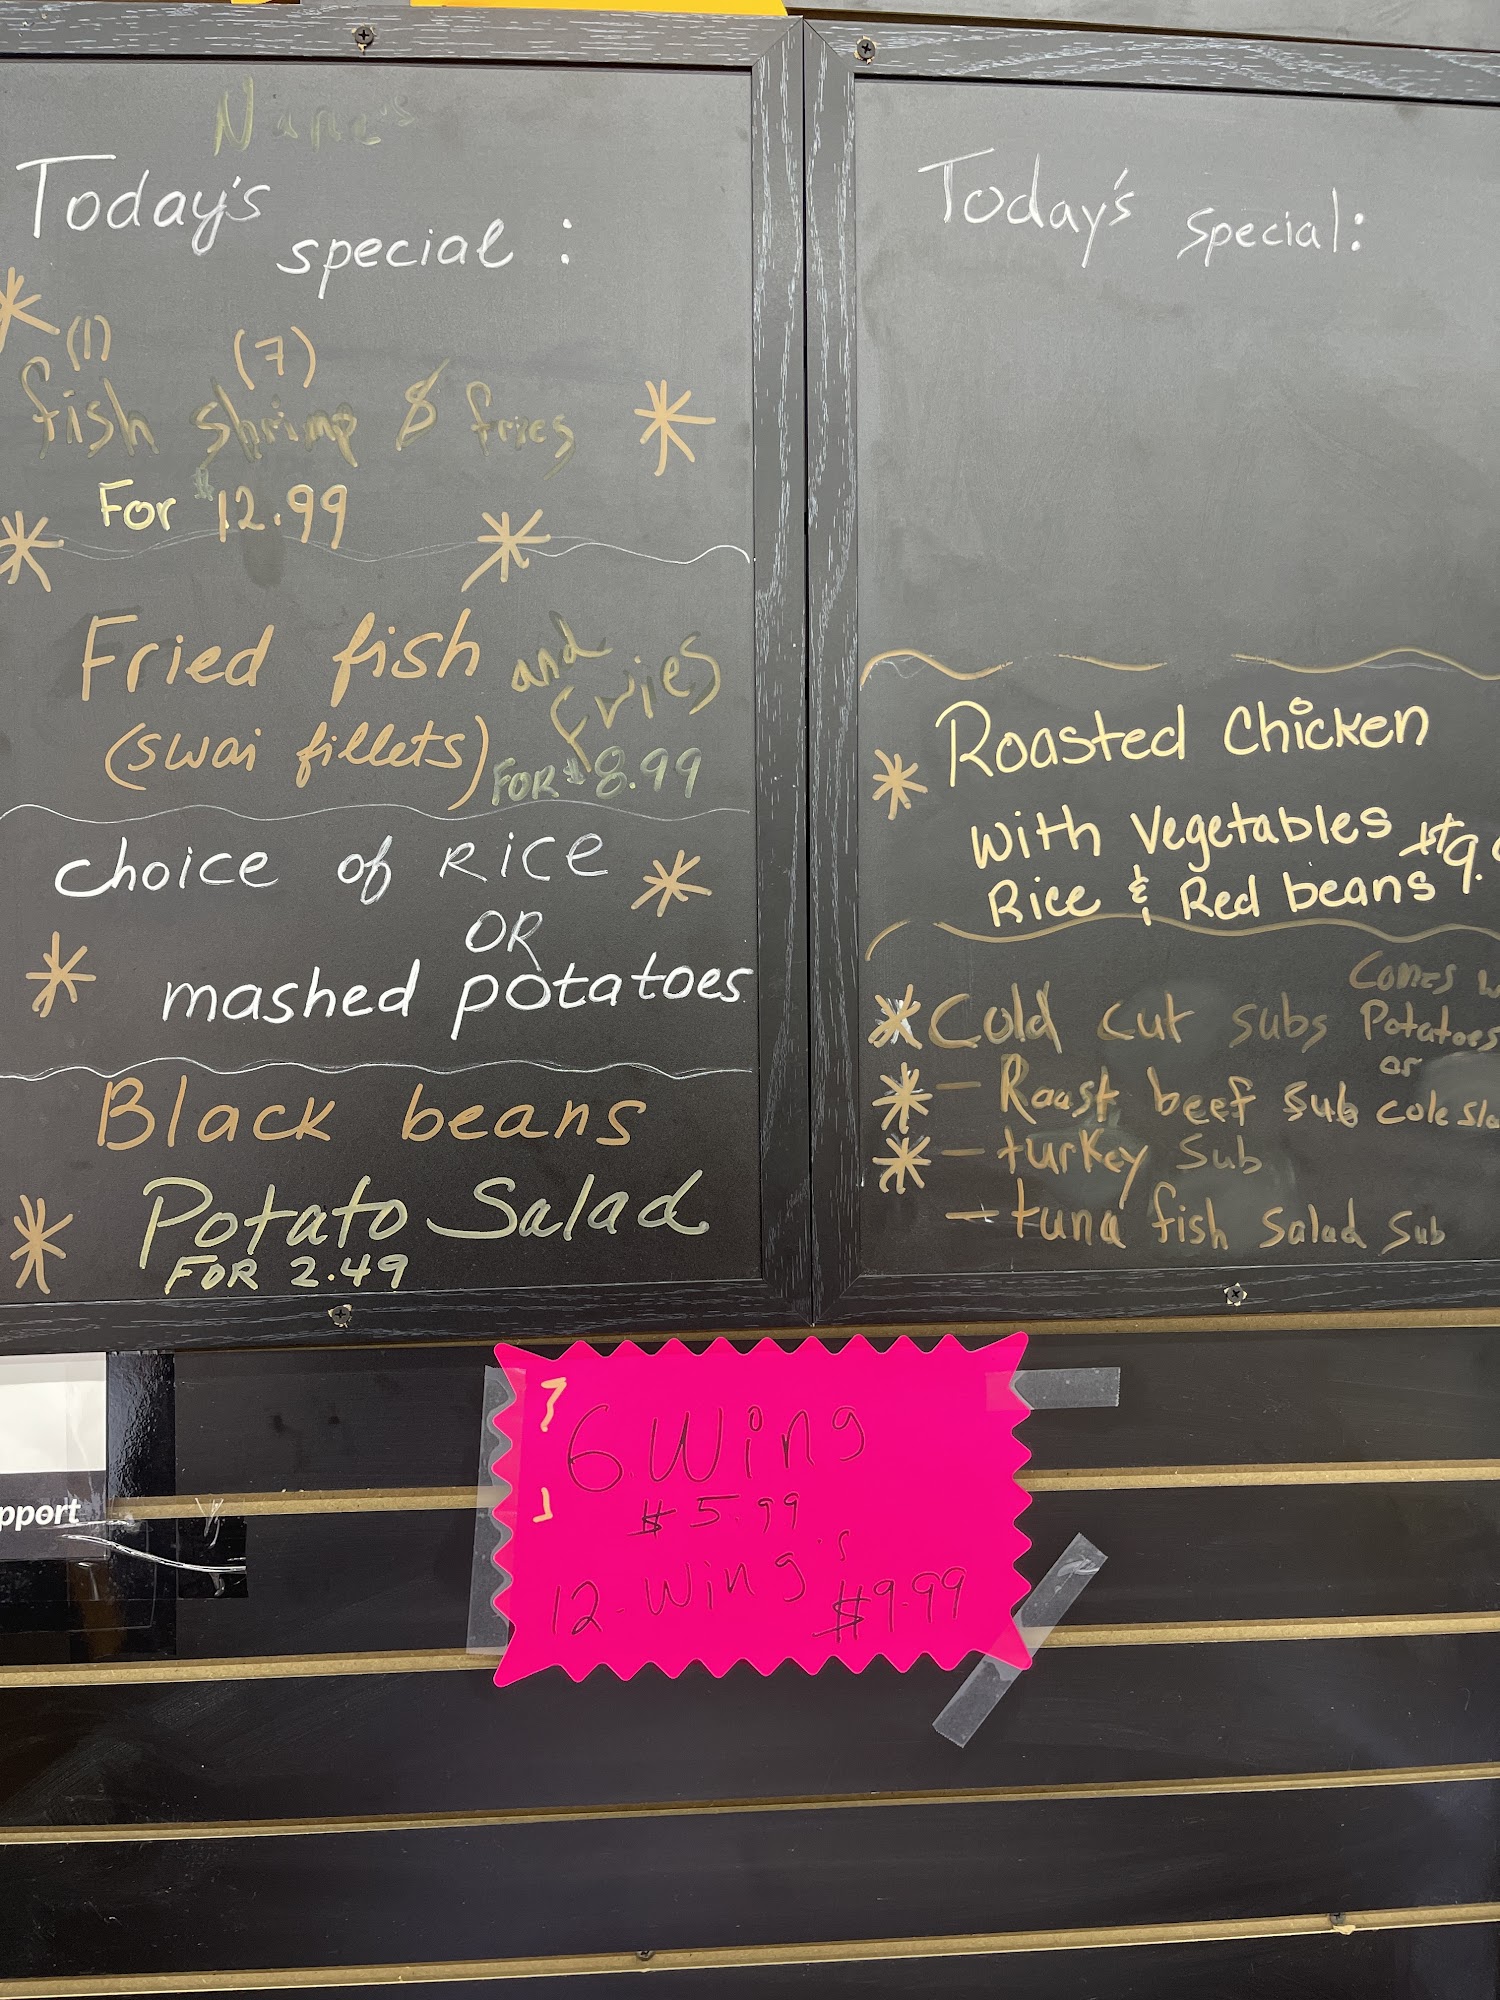 Today's
special :
(1) (7)
fish shrimp & fries
For $12.99
Fried fish and
fries
(swai fillets) FOR $8.99
choice of RICE
OR
mashed potatoes
Black beans
Potato Salad
FOR 2.49
Today's special:
Roasted Chicken
With Vegetables
Rice & Red beans
Comes
Cold cut subs Potatoes
or
- Roast beef sub
- turkey Sub
- tuna fish Salad Sub
6 Wing
$5.99
12-Wing's
$9.99
pport